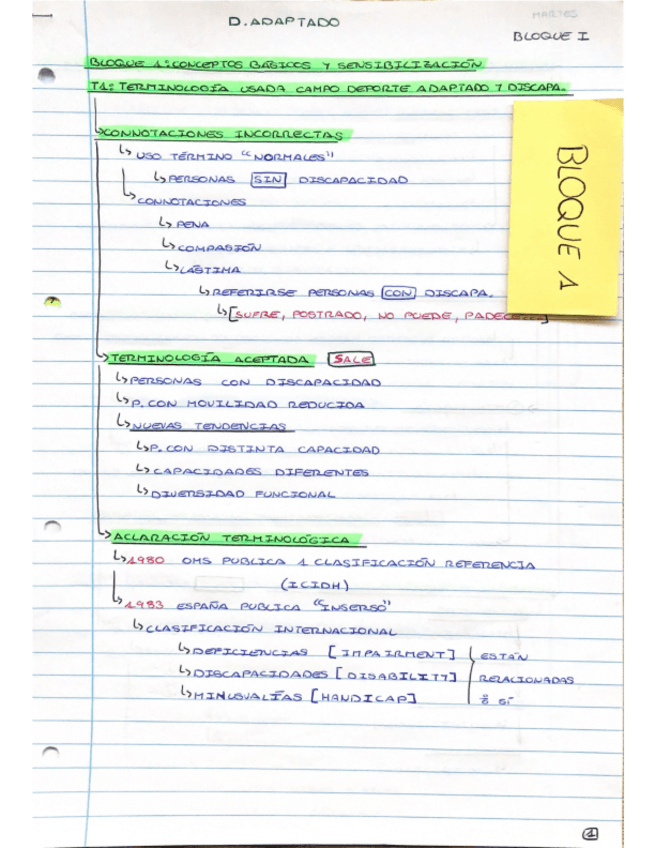 D. ADAPTADO
MARTES
BLOQUE I
BLOQUE 1: CONCEPTOS BÁSICOS Y SENSIBILIZACIÓN
T1: TERMINOLOGÍA USADA CAMPO DEPORTE ADAPTADO Y DISCAPA.
CONNOTACIONES INCORRECTAS
USO TÉRMINO "NORMALES"
PERSONAS SIN DISCAPACIDAD
CONNOTACIONES
PENA
COMPASIÓN
LÁSTIMA
REFERIRSE PERSONAS CON DISCAPA.
[SUFRE, POSTRADO, NO PUEDE,
BLOQUE 1
TERMINOLOGÍA ACEPTADA SALE
PERSONAS CON DISCAPACIDAD
P. CON MOVILIDAD REDUCIDA
NUEVAS TENDENCIAS
P. CON DISTINTA CAPACIDAD
CAPACIDADES DIFERENTES
DIVERSIDAD FUNCIONAL
ACLARACIÓN TERMINOLÓGICA
1980 OMS PUBLICA 1 CLASIFICACIÓN REFERENCIA
(ICIDH)
1983 ESPAÑA PUBLICA "INSERSO"
CLASIFICACIÓN INTERNACIONAL
DEFICIENCIAS [IMPAIRMENT] ESTÁN
DISCAPACIDADES [DISABILITY] RELACIONADAS
MINUSVALÍAS [HANDICAP] SÍ
1